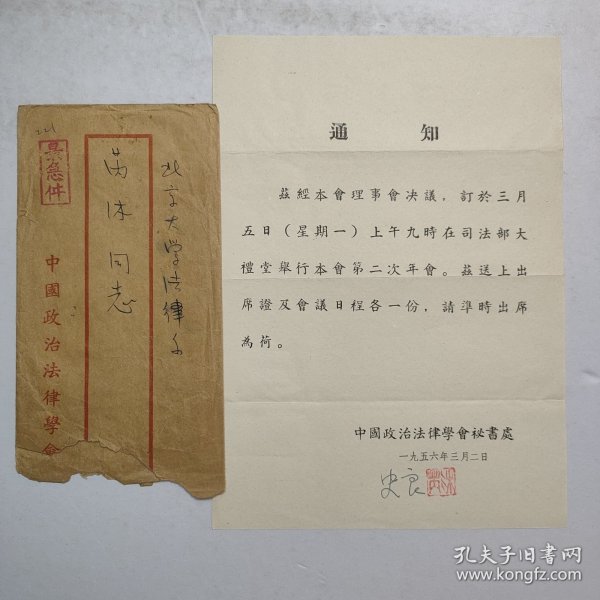 最急件
北京大学法律系
芮沐同志
中國政治法律學會
通知
茲經本會理事會决議，訂於三月
五日（星期一）上午九時在司法部大
禮堂舉行本會第二次年會。茲送上出
席證及會議日程各一份，請準時出席
為荷。
中國政治法律學會祕書處
一九五六年三月二日
史良
孔夫子旧书网
www.kongfz.com